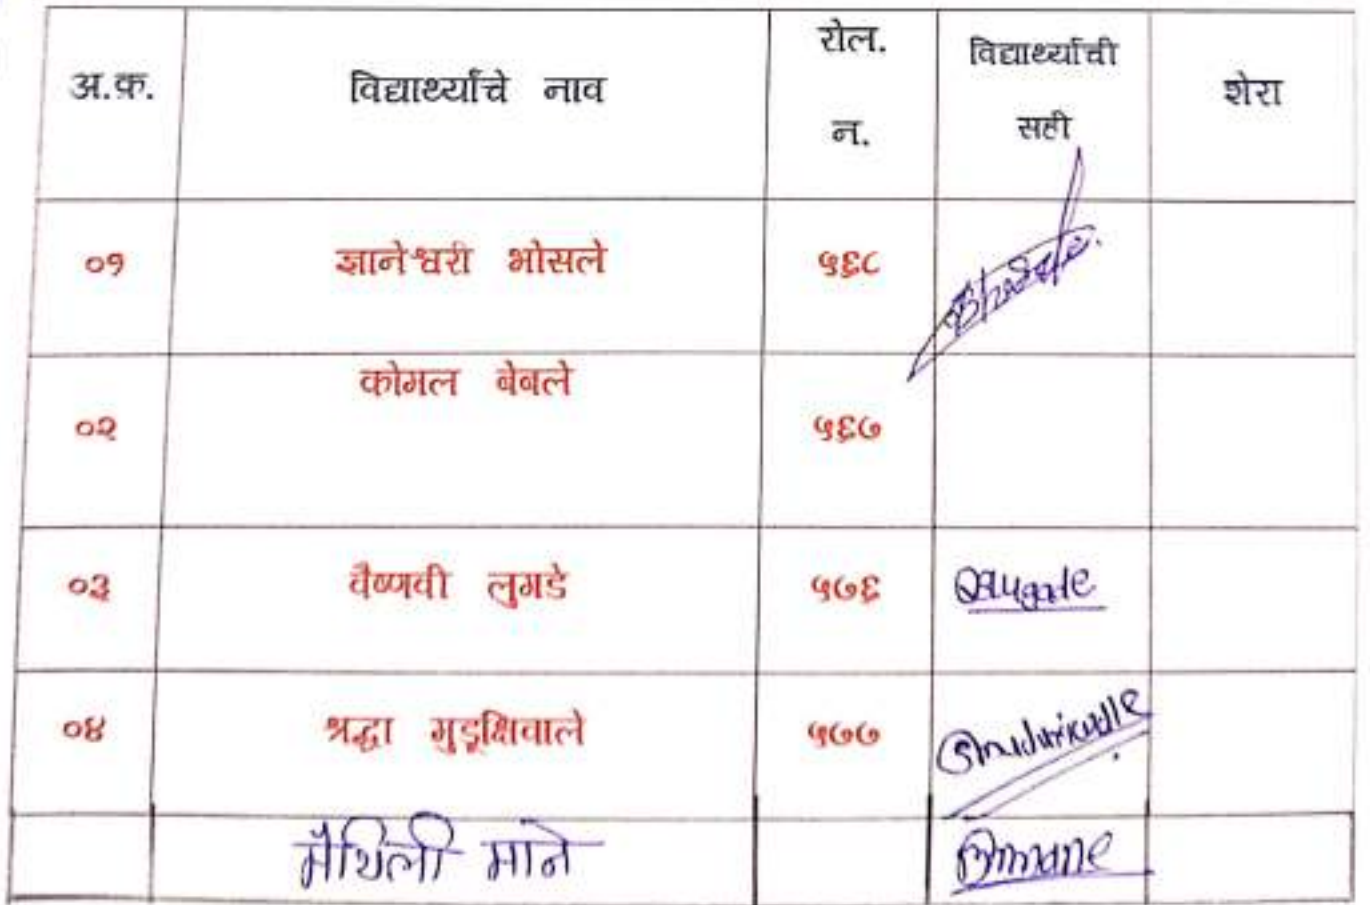 अ.क्र. विद्यार्थ्यांचे नाव रोल. न. विद्यार्थ्याची सही शेरा
०१ ज्ञानेश्वरी भोसले ५६८ Bhosale.
०२ कोमल बेबले ५६७
०३ वैष्णवी लुगडे ५७६ Lugade
०४ श्रद्धा मुडूक्षिवाले ५७७
मैथिली माने mane